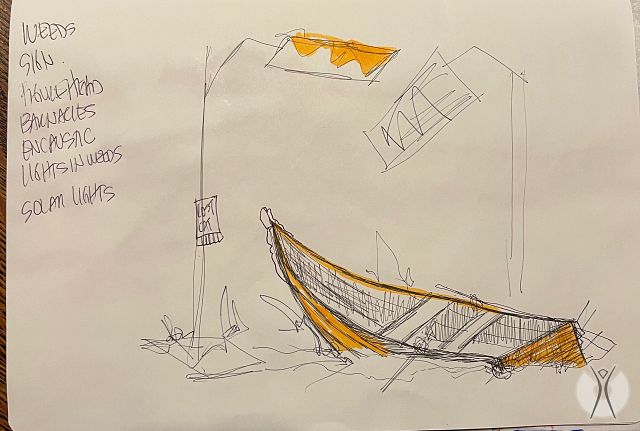 WEEDS
SIGN.
FIGUREHEAD
BARNACLES
ENCAUSTIC
LIGHTS IN WEEDS
SOLAR LIGHTS